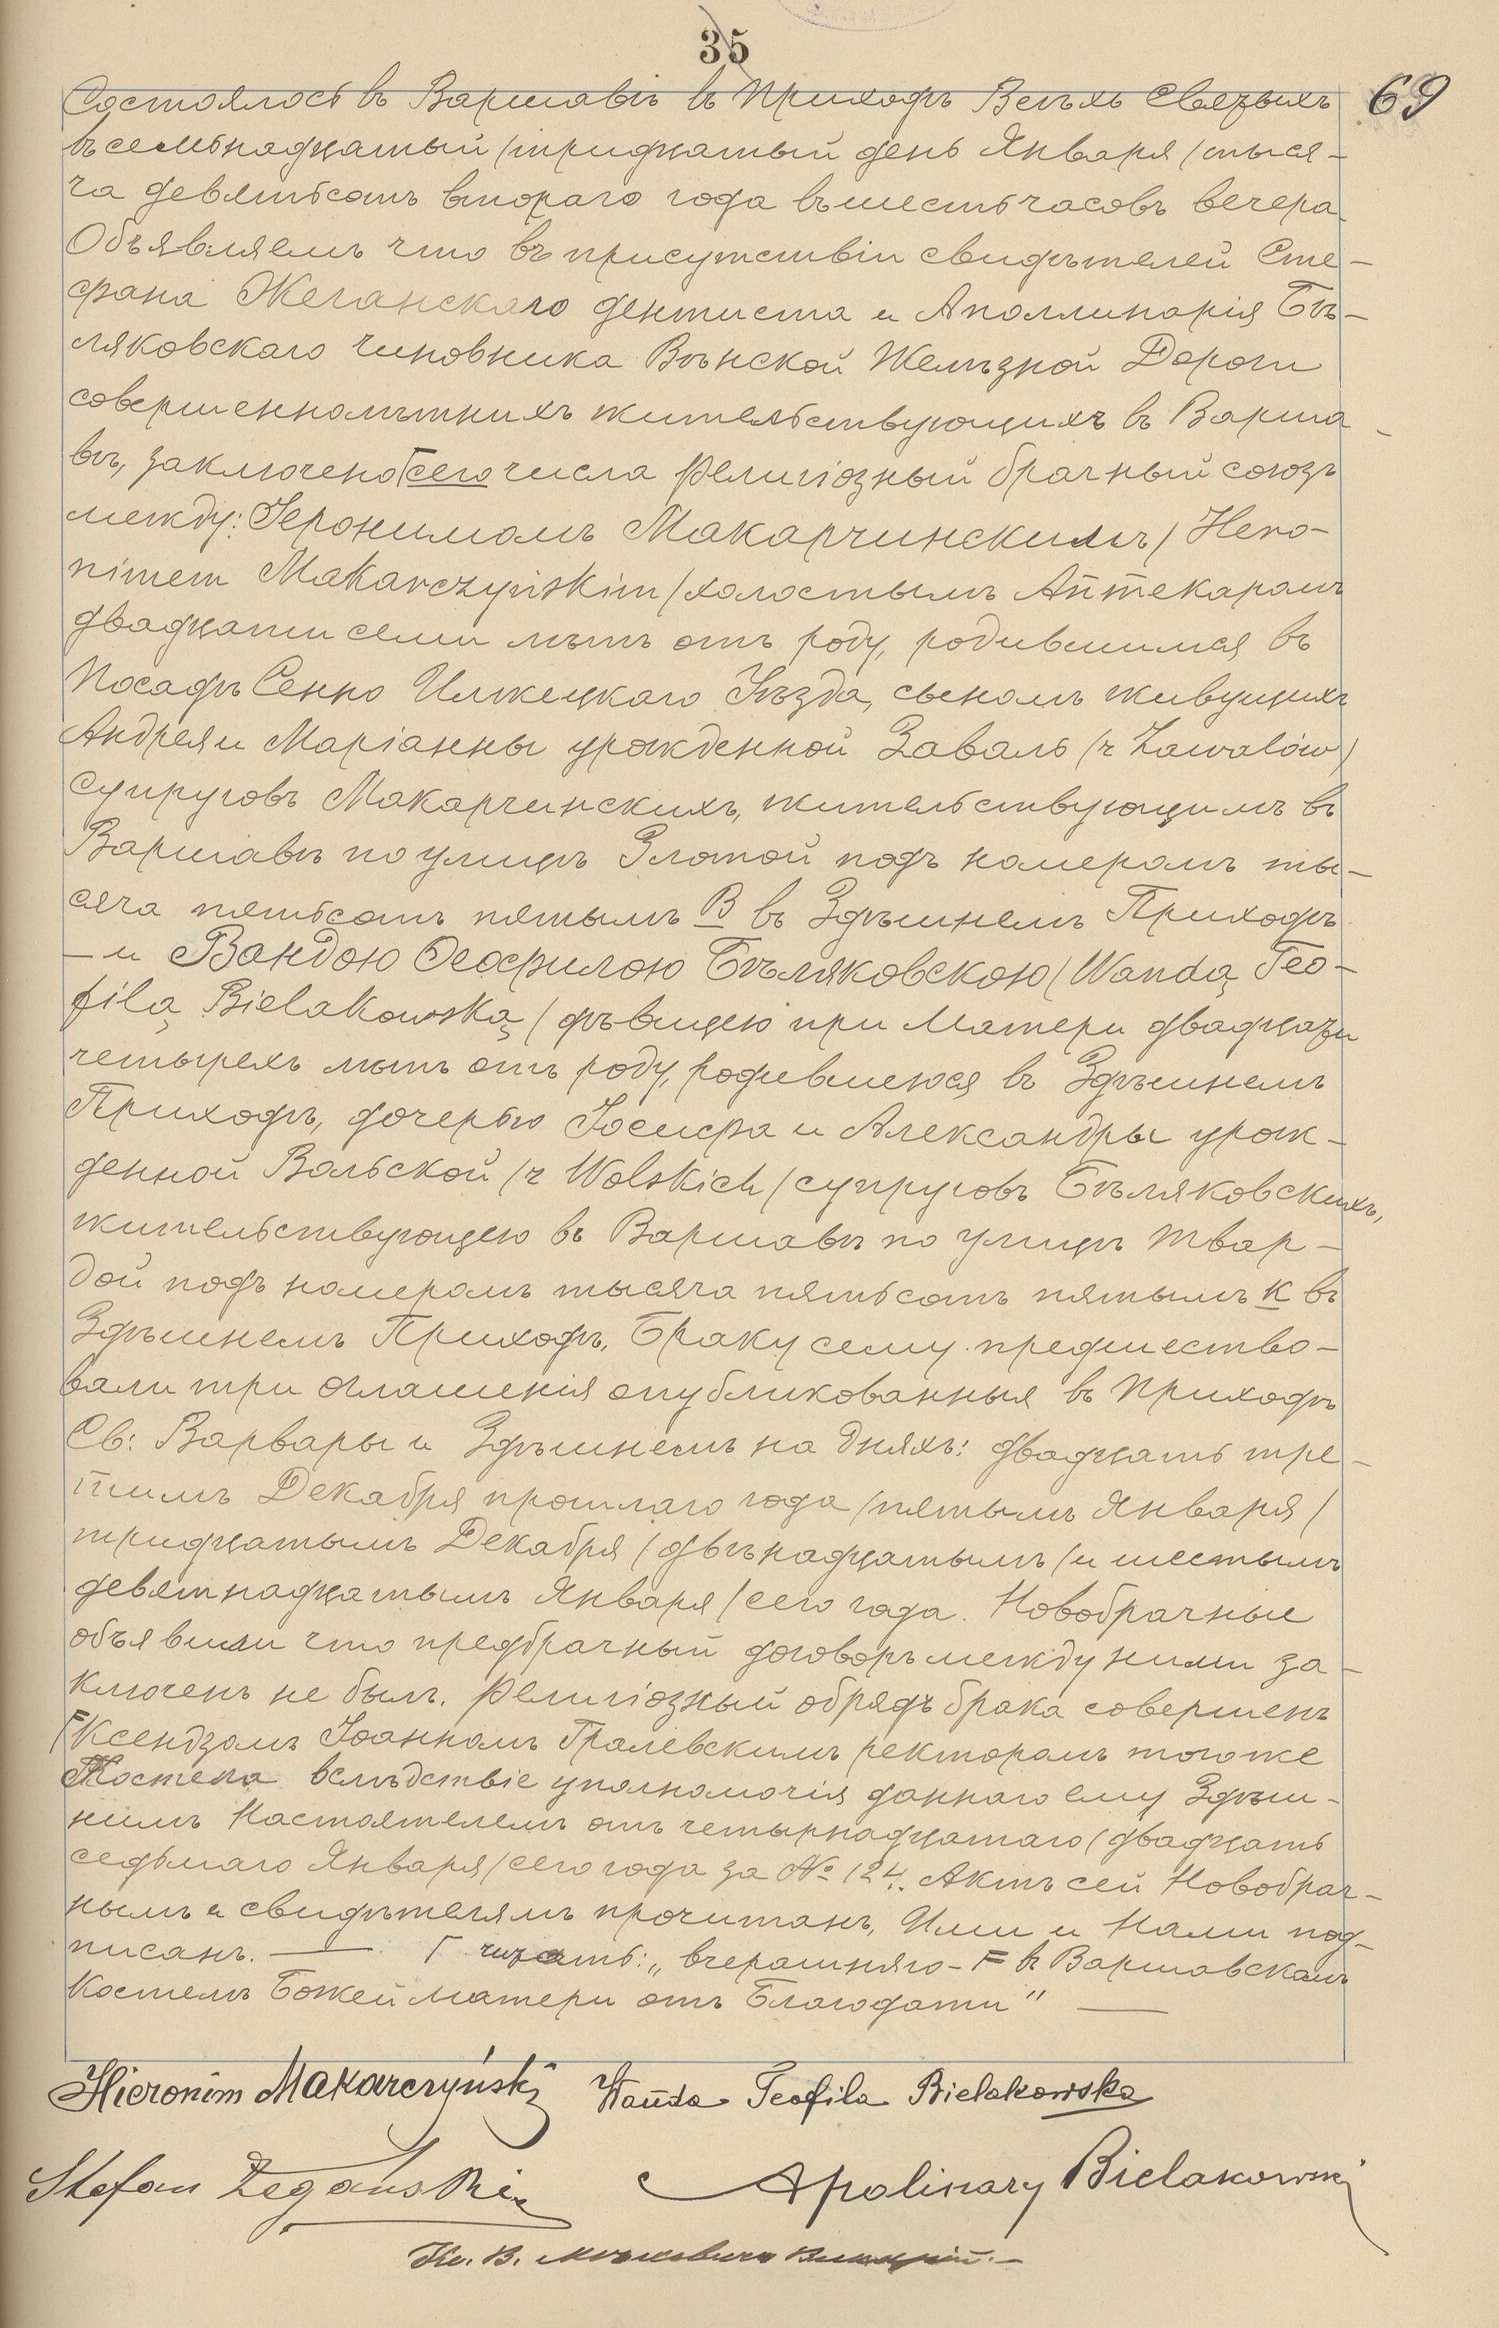 35
69
Состоялось въ Варшавѣ въ Приходѣ Всѣхъ Святыхъ
въ семьнадцатый /тридцатый день Января/ тыся-
ча девятьсотъ втораго года въ шесть часовъ вечера.
Объявляемъ что въ присутствіи свидѣтелей Сте-
фана Жеганскаго дентиста и Аполлинарія Бѣ-
ляковскаго чиновника Вѣнской Желѣзной Дороги
совершеннолѣтнихъ жительствующихъ въ Варша-
вѣ, заключено Г сего числа религіозный брачный союзъ
между: Іеронимомъ Макарчинскимъ / Hero-
nimem Makarczyńskim / холостымъ Аптекаромъ
двадцати семи лѣтъ отъ роду, родившимся въ
Посадѣ Сенно Илжецкаго Уѣзда, сыномъ живущихъ
Андрея и Маріанны урожденной Заваль /z Zawalów/
супруговъ Макарчинскихъ, жительствующимъ въ
Варшавѣ по улицѣ Злотой подъ номеромъ ты-
сяча пятьсотъ пятымъ В въ Здѣшнемъ Приходѣ
— и Вандою Теофилою Бѣляковскою / Wandą Teo-
filą Bielakowską / дѣвицею при Матери двадцати
четырехъ лѣтъ отъ роду, родившеюся въ Здѣшнемъ
Приходѣ, дочерью Іосифа и Александры урож-
денной Вольской /z Wolskich/ супруговъ Бѣляковскихъ,
жительствующею въ Варшавѣ по улицѣ Твар-
дой подъ номеромъ тысяча пятьсотъ пятымъ К въ
Здѣшнемъ Приходѣ. Браку сему предшество-
вали три оглашенія опубликованныя въ Приходѣ
Св: Варвары и Здѣшнемъ на дняхъ: двадцать тре-
тьимъ Декабря прошлаго года /пятымъ Января/
тридцатымъ Декабря /двѣнадцатымъ/ и шестымъ
девятнадцатымъ Января / сего года. Новобрачные
объявили что предбрачный договоръ между ними за-
ключенъ не былъ. Религіозный обрядъ брака совершенъ
F Ксендзомъ Іоанномъ Гралевскимъ ректоромъ тогоже
Костела вслѣдствіе уполномочія даннаго ему Здѣш-
нимъ Настоятелемъ отъ четырнадцатаго /двадцать
седьмаго Января/ сего года за № 124. Актъ сей Новобрач-
нымъ и свидѣтелямъ прочитанъ, Ими и Нами под-
писанъ. — Г читать: „вчерашняго - F въ Варшавскомъ
Костелѣ Божей матери отъ Благодати" —
Hieronim Makarczyński Wanda Teofila Bielakowska
Stefan Żegański Apolinary Bielakowski
Кс. В.